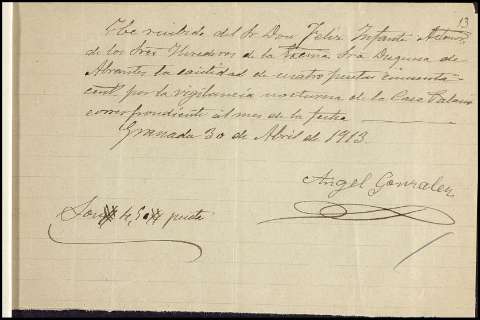 13
He recibido del Sr Don Felix Infante
de los Sres Herederos de la Excma Sra Duquesa de
Abrantes la cantidad de cuatro pesetas cincuenta
cents por la vigilancia nocturna de la Casa Palacio
correspondiente al mes de la fecha
Granada 30 de Abril de 1913.
Angel Gonzalez
Son 4,50 pesetas